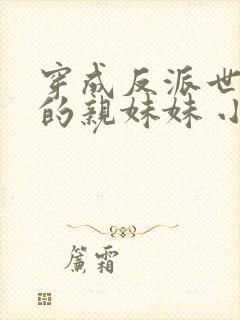 穿成反派世
的親妹妹 小
簾霜